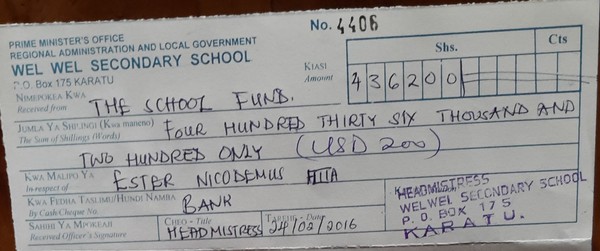 No. 4406
PRIME MINISTER'S OFFICE
REGIONAL ADMINISTRATION AND LOCAL GOVERNMENT
WEL WEL SECONDARY SCHOOL
P.O. Box 175 KARATU
KIASI
Amount
Shs. Cts
4 3 6 2 0 0
NIMEPOKEA KWA
Received from THE SCHOOL FUND.
JUMLA YA SHILINGI (Kwa maneno)
The Sum of Shillings (Words) FOUR HUNDRED THIRTY SIX THOUSAND AND
TWO HUNDRED ONLY (USD 200)
KWA MALIPO YA
In respect of ESTER NICODEMUS
KWA FEDHA TASLIMU/HUNDI NAMBA
By Cash/Cheque No. BANK
SAHIHI YA MPOKEAJI
Received Officer's Signature
CHEO - Title
HEADMISTRESS
TAREHE - Date
24/02/2016
HEADMISTRESS
WELWEL SECONDARY SCHOOL
P. O. BOX 175
KARATU.